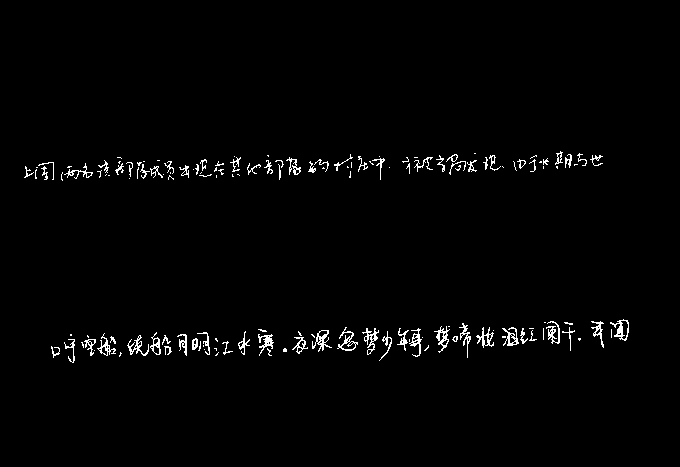 上周两名该部落成员出现在其他部落的村庄中.才被当局发现.由于长期与世
口守空船,绕船月明江水寒。夜深忽梦少年事,梦啼妆泪红阑干.我闻